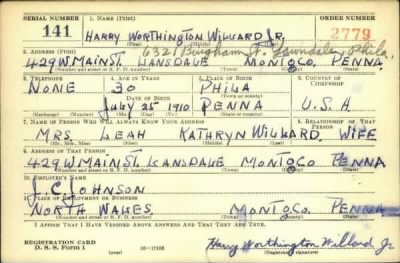 SERIAL NUMBER 1. NAME (Print) ORDER NUMBER
141 HARRY WORTHINGTON WILLARD JR. 2779
(First) (Middle) (Last)
2. ADDRESS (Print) 6321 Bingham St. Lawndale, Phila,
429 W MAIN ST. LANSDALE MONTGCO. PENNA.
(Number and street or R. F. D. number) (Town) (County) (State)
3. TELEPHONE 4. AGE IN YEARS 5. PLACE OF BIRTH 6. COUNTRY OF CITIZENSHIP
NONE 30 PHILA
DATE OF BIRTH (Town or county)
JULY 25 1910 PENNA U.S.A
(Exchange) (Number) (Mo.) (Day) (Yr.) (State or country)
7. NAME OF PERSON WHO WILL ALWAYS KNOW YOUR ADDRESS 8. RELATIONSHIP OF THAT PERSON
MRS. LEAH KATHRYN WILLARD, WIFE
(Mr., Mrs., Miss) (First) (Middle) (Last)
9. ADDRESS OF THAT PERSON
429 W MAIN ST. LANSDALE MONTGCO PENNA
(Number and street or R. F. D. number) (Town) (County) (State)
10. EMPLOYER'S NAME
J. C. JOHNSON
11. PLACE OF EMPLOYMENT OR BUSINESS
NORTH WALES MONTGCO. PENNA
(Number and street or R. F. D. number) (Town) (County) (State)
I AFFIRM THAT I HAVE VERIFIED ABOVE ANSWERS AND THAT THEY ARE TRUE.
REGISTRATION CARD
D. S. S. Form 1 (over) 16—17105 Harry Worthington Willard Jr
(Registrant's signature)